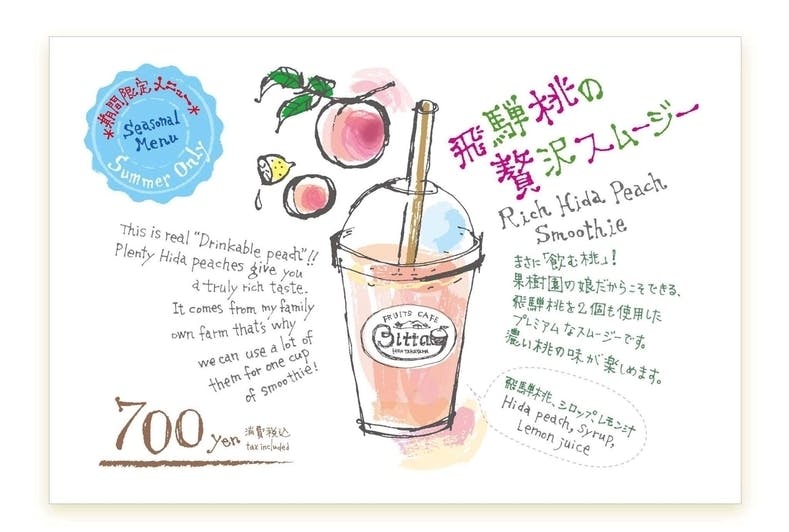 *期間限定メニュー*
Seasonal
Menu
Summer Only
飛騨桃の
贅沢スムージー
Rich Hida Peach
Smoothie
This is real "Drinkable peach"!!
Plenty Hida peaches give you
a truly rich taste.
It comes from my family
own farm that's why
we can use a lot of
them for one cup
of smoothie!
まさに「飲む桃」!
果樹園の娘だからこそできる、
飛騨桃を2個も使用した
プレミアムなスムージーです。
濃い桃の味が楽しめます。
FRUITS CAFE
Bitta
HIDA TAKAYAMA
飛騨桃、シロップ、レモン汁
Hida peach, syrup,
Lemon juice
700 yen
消費税込
tax included